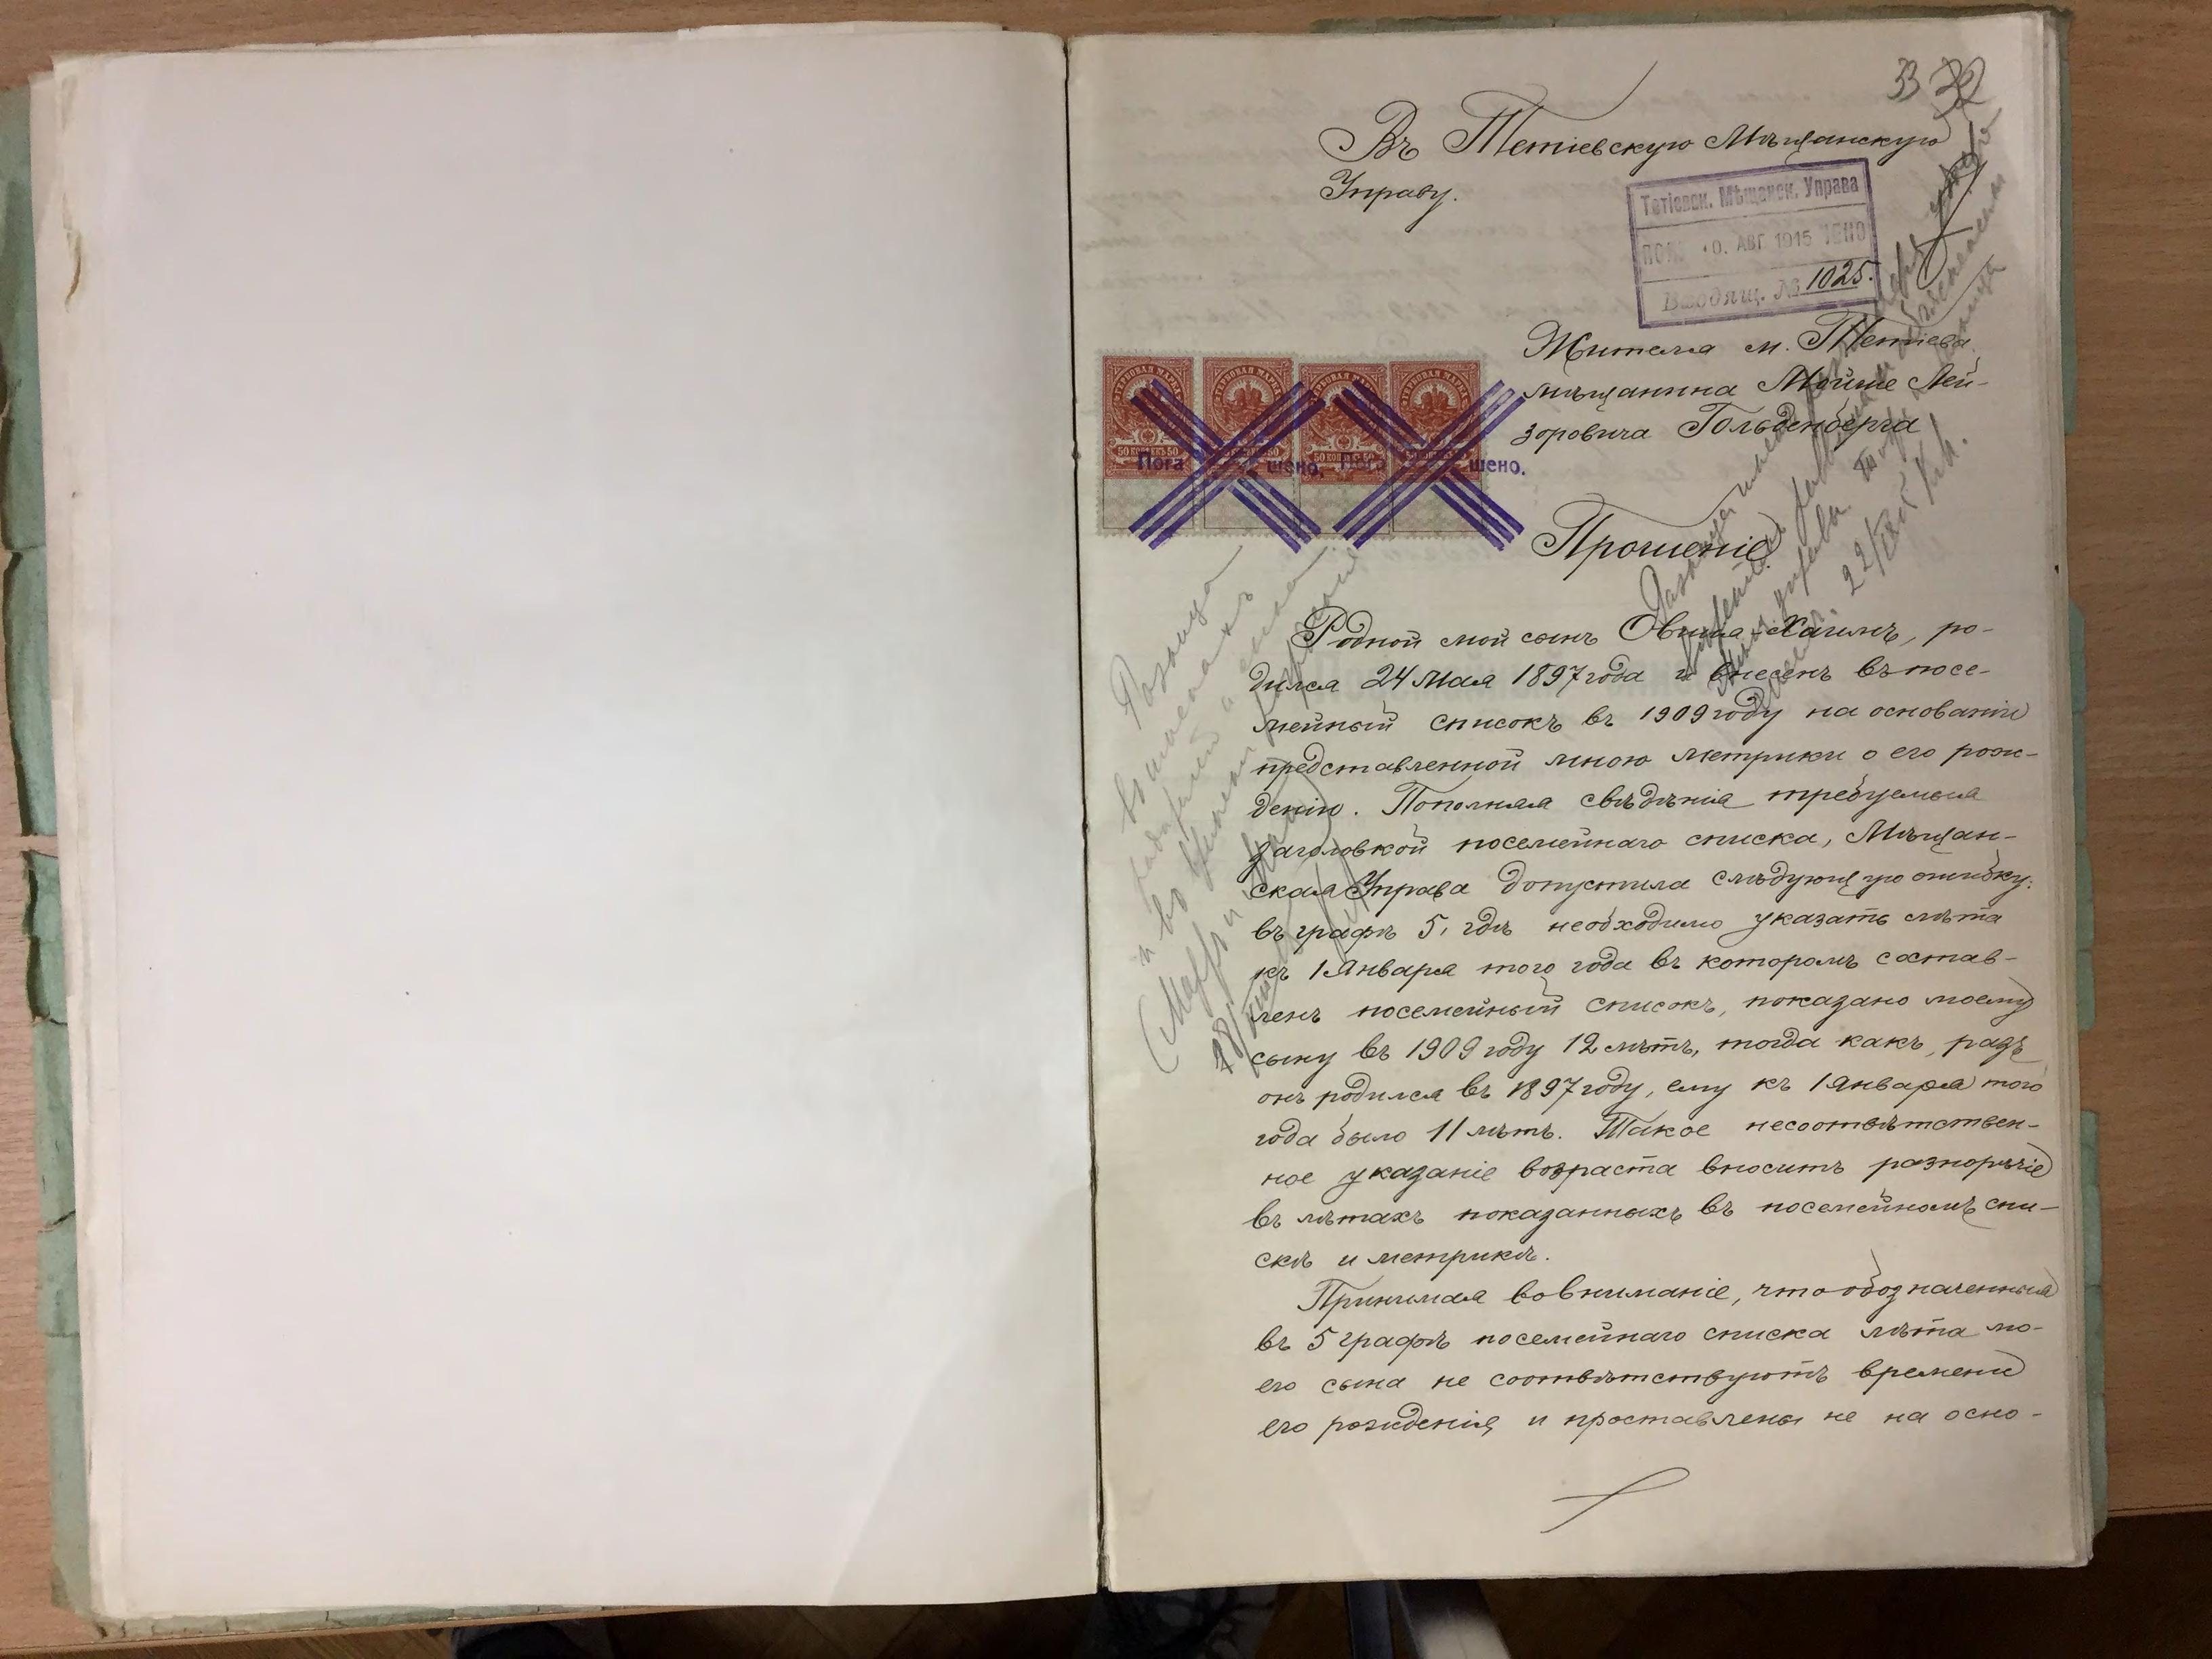 33 32
Въ Тетіевскую Мѣщанскую
Управу.
Тетіевск. Мѣщанск. Управа
0. АВГ 1915
Входящ. № 1025.
Жителя м. Тетіева
мѣщанина Мойше Лей-
зоровича Гольденберга
СЕРБОВАЯ МАРКА ГЕРБОВАЯ МАРКА ГЕРБОВАЯ МАРКА ГЕРБОВАЯ МАРКА
50 КОПѢЕКЪ 50 50 КОПѢЕКЪ 50 50 КОПѢЕКЪ 50
Пога шено. Пога шено.
Прошеніе.
Родной мой сынъ Овшія-Хаимъ, ро-
дился 24 Мая 1897 года и внесенъ въ посе-
мейный списокъ въ 1909 году на основаніи
представленной мною метрики о его рож-
деніи. Пополняя свѣдѣнія требуемыя
заголовкой посемейнаго списка, Мѣщан-
ская Управа допустила слѣдующую ошибку:
въ графѣ 5, гдѣ необходимо указать лѣта
къ 1 Января того года въ которомъ состав-
ленъ посемейный списокъ, показано моему
сыну въ 1909 году 12 лѣтъ, тогда какъ, разъ
онъ родился въ 1897 году, ему къ 1 Января того
года было 11 лѣтъ. Такое несоотвѣтствен-
ное указаніе возраста вноситъ разнорѣчіе
въ лѣтахъ показанныхъ въ посемейномъ спи-
скѣ и метрикѣ.
Принимая во вниманіе, что обозначенныя
въ 5 графѣ посемейнаго списка лѣта мо-
его сына не соотвѣтствуютъ времени
его рожденія и проставлены не на осно-